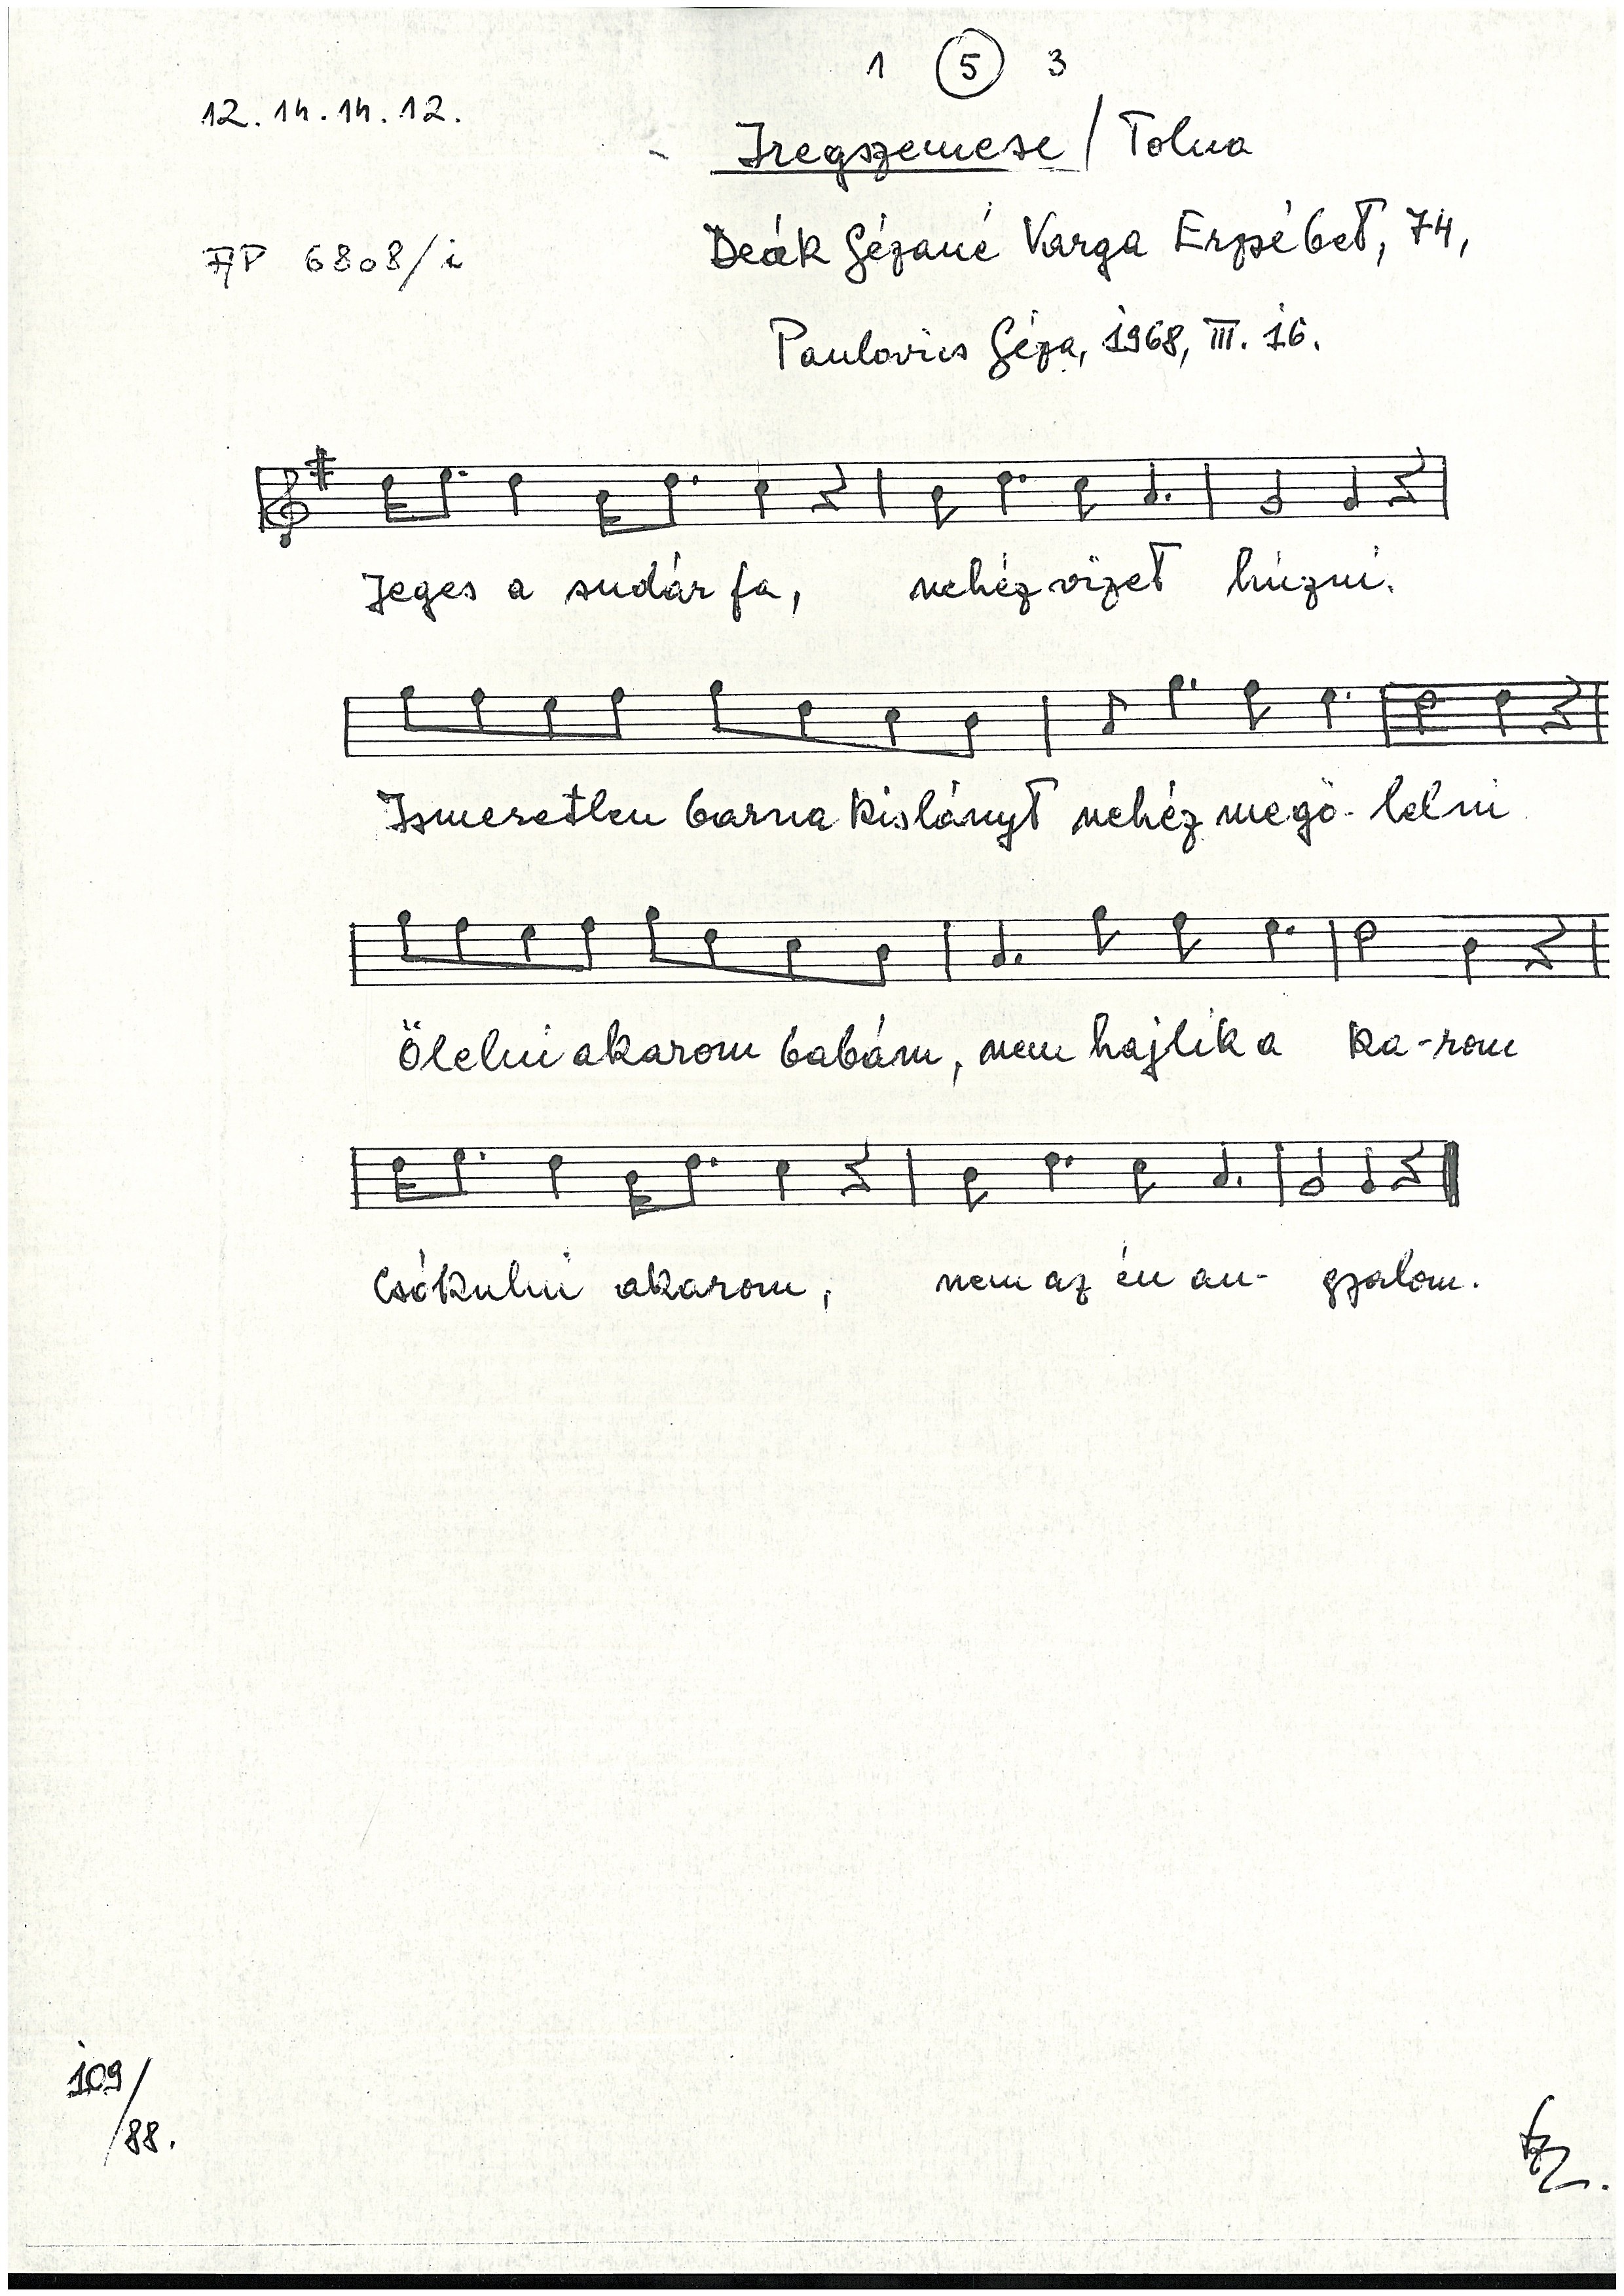 1 5 3
12. 14. 14. 12.
Iregszemcse / Tolna
AP 6808/i
Deák Gézáné Varga Erzsébet, 74,
Paulovics Géza, 1968, III. 16.
Jeges a sudár fa, nehéz vizet húzni.
Ismeretlen barna kislányt nehéz megö-lelni
Ölelni akarom babám, nem hajlik a ka-rom
Csókulni akarom, nem az én an-gyalom.
109/
/88.